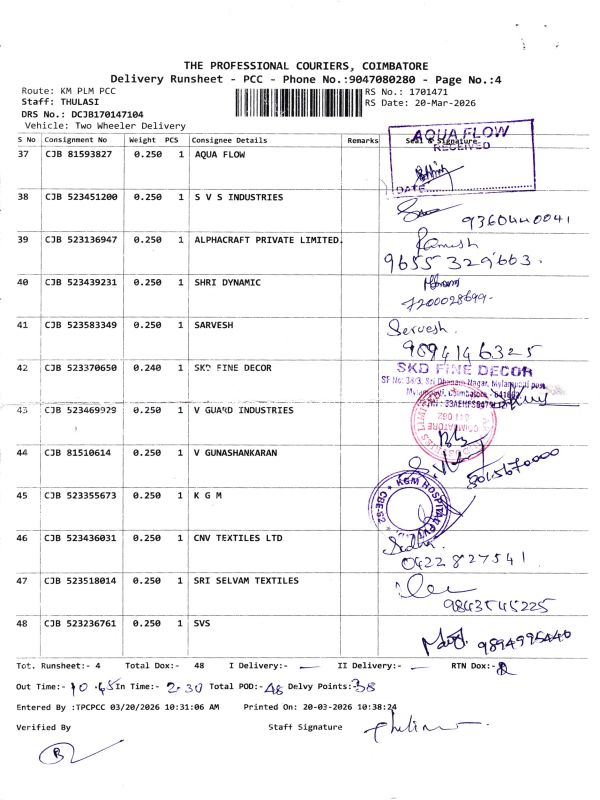 THE PROFESSIONAL COURIERS, COIMBATORE
Delivery Runsheet - PCC - Phone No.:9047080280 - Page No.:4
Route: KM PLM PCC
Staff: THULASI
DRS No.: DCJB170147104
Vehicle: Two Wheeler Delivery
RS No.: 1701471
RS Date: 20-Mar-2026
S No Consignment No Weight PCS Consignee Details Remarks Seal & Signature
37 CJB 81593827 0.250 1 AQUA FLOW
AQUA FLOW
RECEIVED
DATE
38 CJB 523451200 0.250 1 S V S INDUSTRIES
9360440041
39 CJB 523136947 0.250 1 ALPHACRAFT PRIVATE LIMITED.
Ramesh
9655 329663.
40 CJB 523439231 0.250 1 SHRI DYNAMIC
7200028699-
41 CJB 523583349 0.250 1 SARVESH
Servesh.
9894146325
42 CJB 523370650 0.240 1 SKD FINE DECOR
SKD FINE DECOR
SF No: 38/3, Sri Dhanam Nagar, Mylampatti post,
43 CJB 523469929 0.250 1 V GUARD INDUSTRIES
44 CJB 81510614 0.250 1 V GUNASHANKARAN
45 CJB 523355673 0.250 1 K G M
KGM HOSPITAL
46 CJB 523436031 0.250 1 CNV TEXTILES LTD
0422 827541
47 CJB 523518014 0.250 1 SRI SELVAM TEXTILES
9843545225
48 CJB 523236761 0.250 1 SVS
9894995440
Tot. Runsheet:- 4 Total Dox:- 48 I Delivery:- — II Delivery:- — RTN Dox:-
Out Time:- 10.45 In Time:- 2.30 Total POD:- 48 Delvy Points:- 38
Entered By :TPCPCC 03/20/2026 10:31:06 AM Printed On: 20-03-2026 10:38:24
Verified By Staff Signature